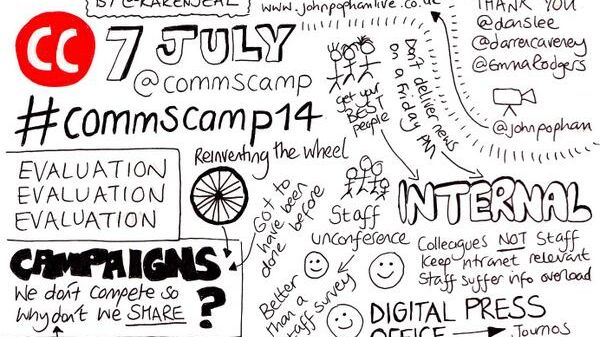 BY @KARENJEAL
www.johnpophamlive.co.uk
THANK YOU
@danslee
@darrencaveney
@EmmaRodgers
@johnpopham
CC
7 JULY
@commscamp
#commscamp14
Get your
BEST
people
Don't deliver news
on a Friday PM
EVALUATION
EVALUATION
EVALUATION
Reinventing the wheel
Got to
have been
done before
CAMPAIGNS
We don't compete so
Why don't we SHARE ?
Staff
unconference
Better
than a
staff survey
INTERNAL
Colleagues NOT Staff
Keep intranet relevant
Staff suffer info overload
DIGITAL PRESS
OFFICE
Journos